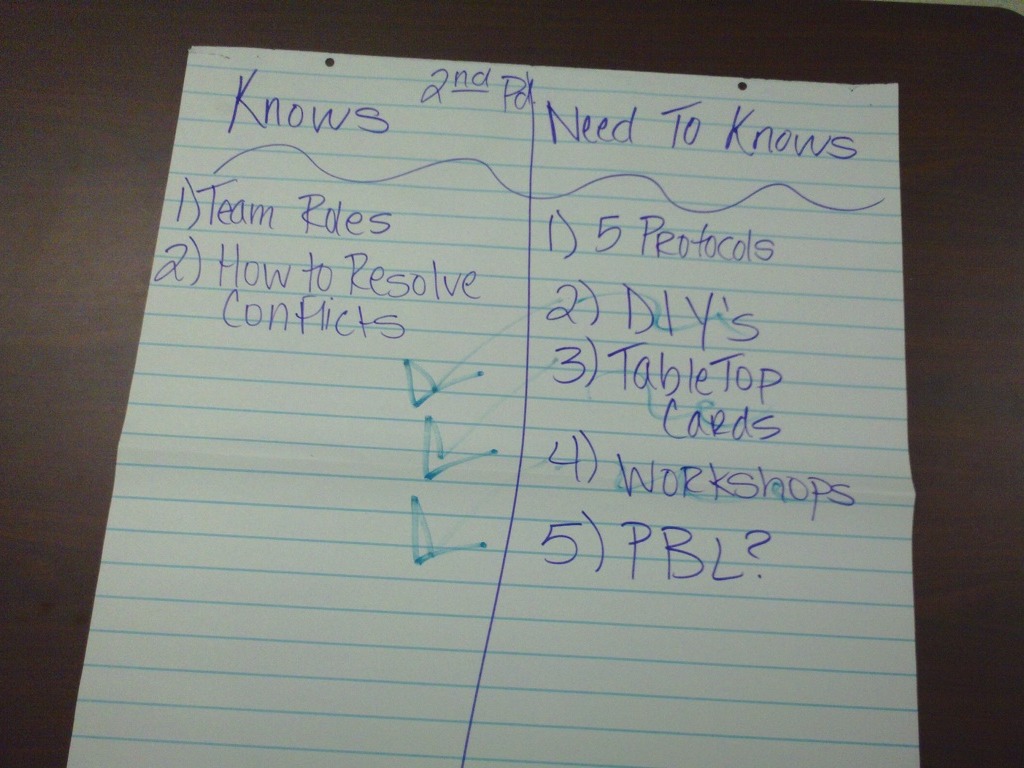 Knows
2nd Pd
1) Team Roles
2) How to Resolve
Conflicts
Need To Knows
1) 5 Protocols
2) DIY's
3) TableTop
Cards
4) Workshops
5) PBL?